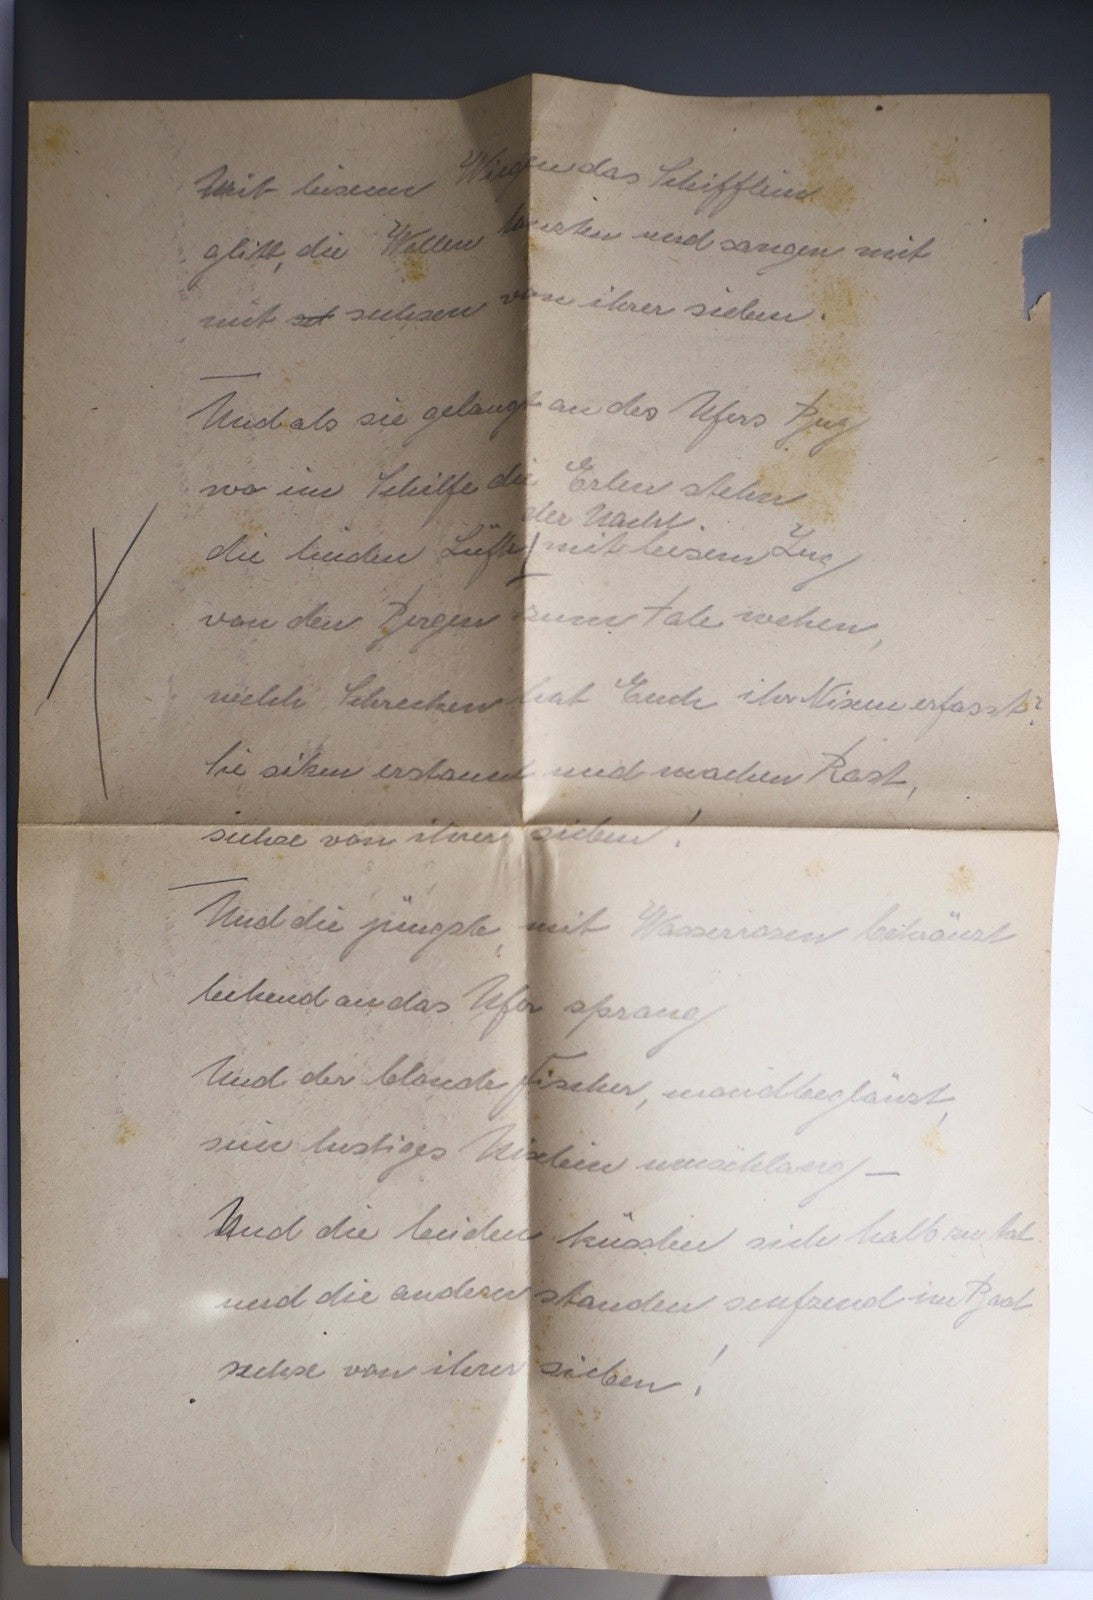 Mit leisem Wiegen das Schifflein
glitt, die Wellen lauschten und sangen mit
mit sechsen von ihrer sieben.
Und als sie gelangt an des Ufers Bug
wo im Schilfe die Erlen stehn
der Nacht.
die linden Lüfte mit leisem Zug
von den Bergen zum Tale wehen,
welch Schrecken hat Euch ihr Nixen erfasst?
Sie sitzen erstaunt und machen Rast,
sechse von ihrer sieben!
Und die jüngste, mit Wasserrosen bekränzt
behend an das Ufer sprang
Und der blonde Fischer, mondbeglänzt,
sein lustiges Nixlein umschlang –
Und die beiden küssten sich halb zu tot
und die andern standen seufzend im Boot
sechse von ihrer sieben!